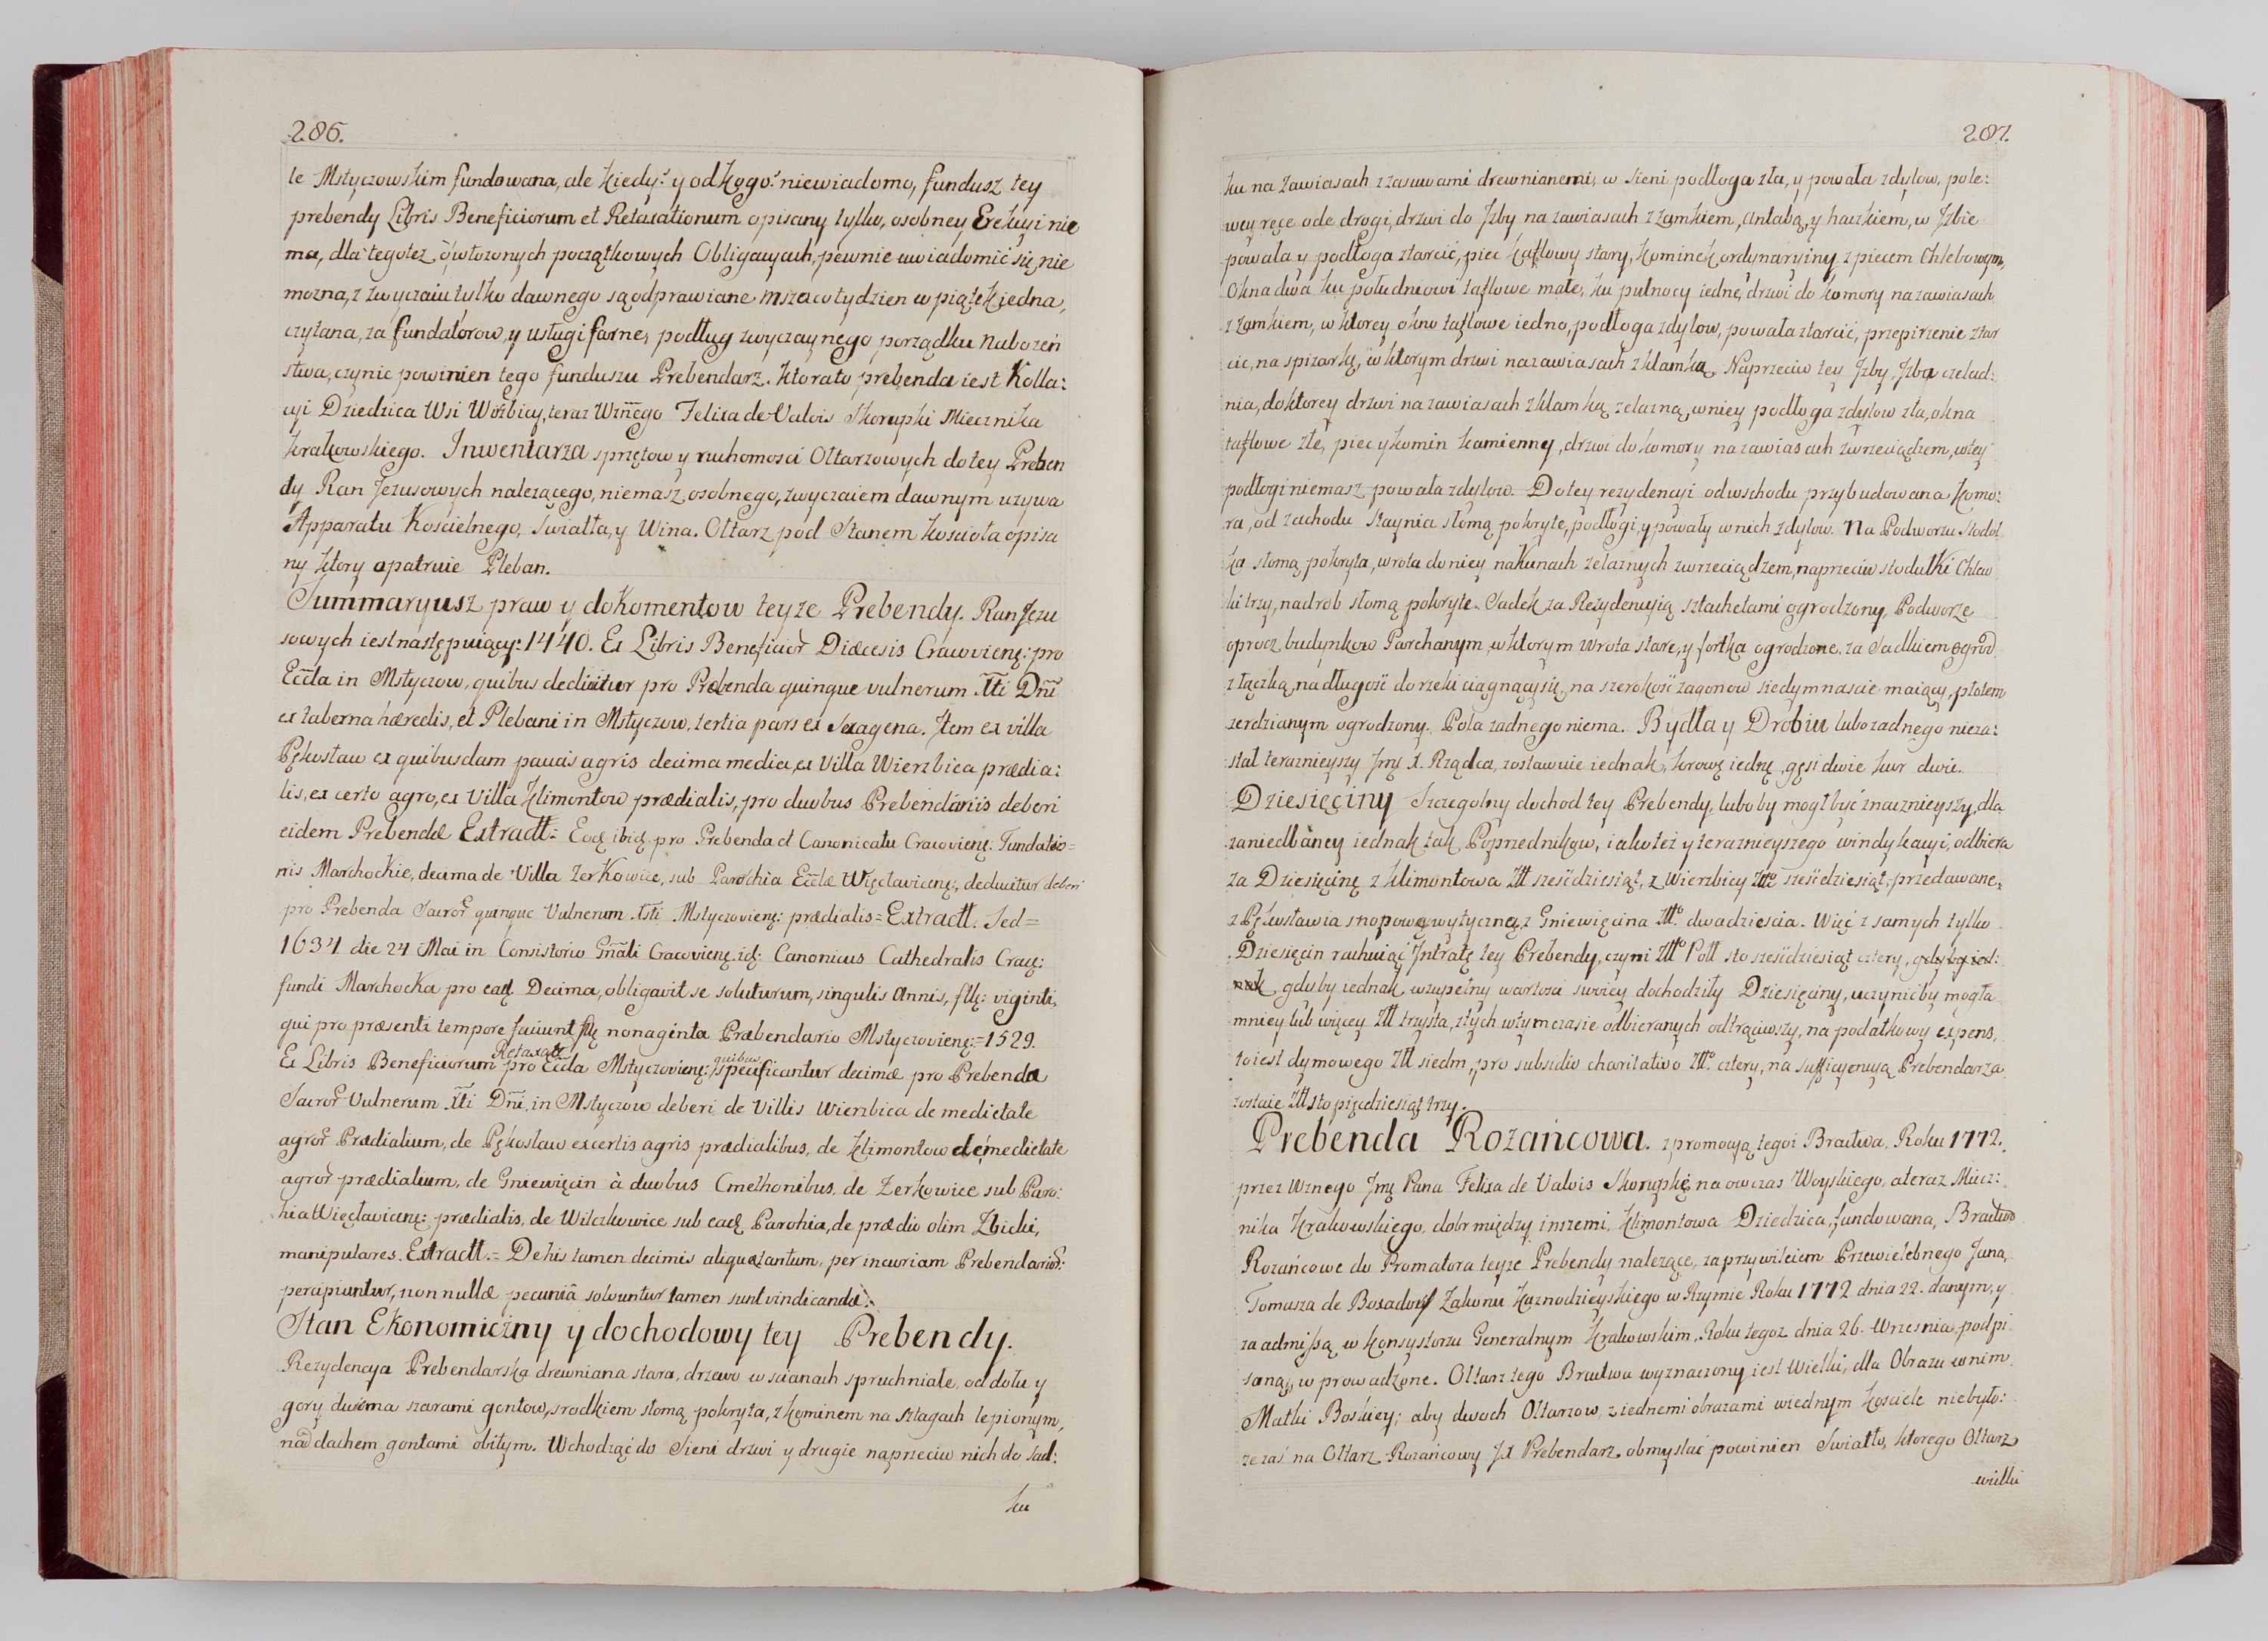 286.
le Mstyczowskim fundowana, ale kiedy? y od kogo? niewiadomo, fundusz tey
prebendy Libris Beneficiorum et Retaxationum opisany tylko, osobney Erekcyi nie
ma, dla tegoteż o włożonych początkowych Obligacyach, pewnie uwiadomić się nie
mozna, z zwyczaiu tylko dawnego są odprawiane msza co tydzien w piątek jedna,
czytana, za fundatorow, y usługi farne, podług zwyczaynego porządku nabozeń
stwa, czynic powinien tego funduszu Prebendarz. Ktorato prebenda iest Kolla:
cyi Dziedzica Wsi Wierzbicy, teraz Wznego Felixa de Valois Skorupki Miecznika
Krakowskiego. Inwentarza sprzętow y ruchomosci Ołtarzowych do tey Preben
dy Ran Jezusowych nalezącego, niemasz osobnego, zwyczaiem dawnym uzywa
Apparatu Koscielnego, swiatła, y Wina. Ołtarz pod Stanem kosciola opisa
ny ktory opatruie Pleban.
Summaryusz praw y dokomentow teyze Prebendy. Ran Jezu
sowych iest następuiący: 1440. Ex Libris Beneficior Diæcesis Cracovienę: pro
Eccla in Mstyczow, quibus dedicitur pro Præbenda quinque vulnerum Xti Dni
ex taberna hæredis, et Plebani in Mstyczow, tertia pars ex Sexagena. Item ex villa
Pękosław ex quibusdam paucis agris decima media, ex Villa Wierzbica prædia:
lis, ex certo agro, ex Villa Klimontow prædialis, pro duobus Prebendariis deberi
eidem Prebendæ Extractt= Eodę ibidę pro Prebenda et Canonicatu Cracovienę: Fundatio=
nis Marchockie, decima de Villa Zerkowice, sub Parochia Ecclæ Więcłavicenę:, deducitur deberi
pro Prebenda Sacror quinque Vulnerum Xsti Mstyczovienę: prædialis= Extractt. Sed=
1634 die 24 Mai in Consistorio Gnali Cracovienę. idę: Canonicus Cathedralis Cracę:
fundi Marchocka pro eadę Decima, obligavit se soluturum, singulis Annis, flę: viginti,
qui pro præsenti tempore faciunt flę nonaginta Præbendario Mstyczovienę:=1529.
Ex Libris Beneficiorum Retaxatę pro Eccla Mstyczovienę: quibus specificantur decimæ pro Prebenda
Sacror Vulnerum Xti Dni, in Mstyczow deberi de Villis Wierzbica de medietate
agror Prædialium, de Pękosław ex certis agris prædialibus, de Klimontow de medietate
agror prædialium, de Gniewięcin à duobus Cmethonibus, de Żerkowice sub Paro:
hia Więcłavicenę: prædialis, de Wilczkowice sub eadę Parohia, de prædio olim Zbicki,
manipulares. Extractt.= De his tamen decimis aliquæ tantum, per incuriam Prebendarior:
percipiuntur, non nullæ pecuniâ solvuntur tamen sunt vindicandæ.
Stan Ekonomiczny y dochodowy tey Prebendy.
Rezydencya Prebendarska drewniana stara, drzewo w scianach spruchniałe, od dołu y
gory dwiema szarami gontow, srodkiem słomą pokryta, z kominem na sztagach lepionym,
nad dachem gontami obitym. Wchodząć do Sieni drzwi y drugie naprzeciw nich do sad:
ku
287.
ku na zawiasach z zasuwami drewnianemi, w sieni podłoga zła, y powała z dylow, pole:
wey ręce ode drogi, drzwi do Jzby na zawiasach z zamkiem, antabą, y haczkiem, w Jzbie
powała y podłoga z tarcić, piec kaflowy stary, kominek ordynaryiny z piecem Chlebowym,
Okna dwa ku południowi taflowe małe, ku pułnocy iedne, drzwi do komory na zawiasach
z zamkiem, w ktorey okno taflowe iedno, podłoga z dylow, powała z tarcić, przepirzenie z tar
cic, na spizarkę, w ktorym drzwi na zawiasach z klamką. Naprzeciw tey Jzby, Jzba czelad:
nia, do ktorey drzwi na zawiasach z klamką zelazną, w niey podłoga z dylow zła, okna
taflowe złe, piec y komin kamienny, drzwi do komory na zawiasach z wrzeciądzem, w tey
podłogi niemasz powała z dylow. Do tey rezydencyi od wschodu przybudowana komo:
ra, od zachodu staynia słomą pokryte, podłogi, y powały w nich z dylow. Na Podworzu Stodoł
ka słomą pokryta, wrota do niey na kunach zelaznych z wrzeciądzem, naprzeciw stodułki Chlew
ki trzy, na drob słomą pokryte. Sadek za Rezydencyią sztachetami ogrodzony, Podworze
oprocz budynkow Parchanym, w ktorym Wrota stare, y fortka ogrodzone. za Sadkiem ogrod
z łączką, na długość do rzeki ciągnący się, na szerokość zagonow siedymnascie maiący, płotem
zerdzianym ogrodzony. Pola zadnego niema. Bydła y Drobiu lubo zadnego nieza:
stał teraznieyszy Jmę X. Rządca, zostawuie iednak, krowę iednę, gęsi dwie kur dwie.
Dziesięciny Szczegolny dochod tey Prebendy, lubo by mogł być znacznieyszy, dla
zaniedbaney iednak tak Poprzednikow, iako też y teraznieyszego windykacyi, odbiera
za Dziesięcinę z Klimontowa Złł sześćdziesiąt, z Wierzbicy Złłº sześćdziesiąt, przedawane,
z Pękosławia snopową wytyczną, z Gniewięcina Złłº. dwadziescia. Więć z samych tylko
Dziesięcin rachuiąć Jntratę tey Prebendy, czyni Złłº Poll sto sześćdziesiąt cztery, gdyby ied:
nak, gdyby iednak w zupełny wartosci swoiey dochodziły Dziesięciny, uczynić by mogła
mniey lub więcey Złł trzysta, z tych w tymczasie odbieranych odtrąciwszy, na podatkowy expens,
to iest dymowego Złł siedm, pro subsidio charitativo Złłº. cztery, na sufficyencyą Prebendarza
zostaie Złł sto pięcdziesiąt trzy.
Prebenda Rozańcowa. z promocyą tegoi Bractwa, Roku 1772.
przez Wznego Jmę Pana Felixa de Valois Skorupkę na owczas Woyskiego, a teraz Miecz:
nika Krakowskiego, dobr między inszemi, Klimontowa Dziedzica, fundowana, Bractwo
Rozańcowe do Promatora teyze Prebendy nalezące, za przywileiem Przewielebnego Jana,
Tomasza de Boxadorf Zakonu Kaznodzieyskiego w Rzymie Roku 1772 dnia 22. danym, y
za admissą w Konsystorzu Generalnym Krakowskim, Roku tegoz dnia 26. Wrzesnia podpi
saną, w prowadzone. Ołtarz tego Bractwa wyznaczony iest Wielki, dla Obrazu w nim
Matki Boskiey; aby dwoch Ołtarzow, z iednemi obrazami w iednym Kosciele niebyło:
ze zaś na Ołtarz Rozańcowy JX Prebendarz obmyslać powinien Swiatło, ktorego Ołtarz
wielki